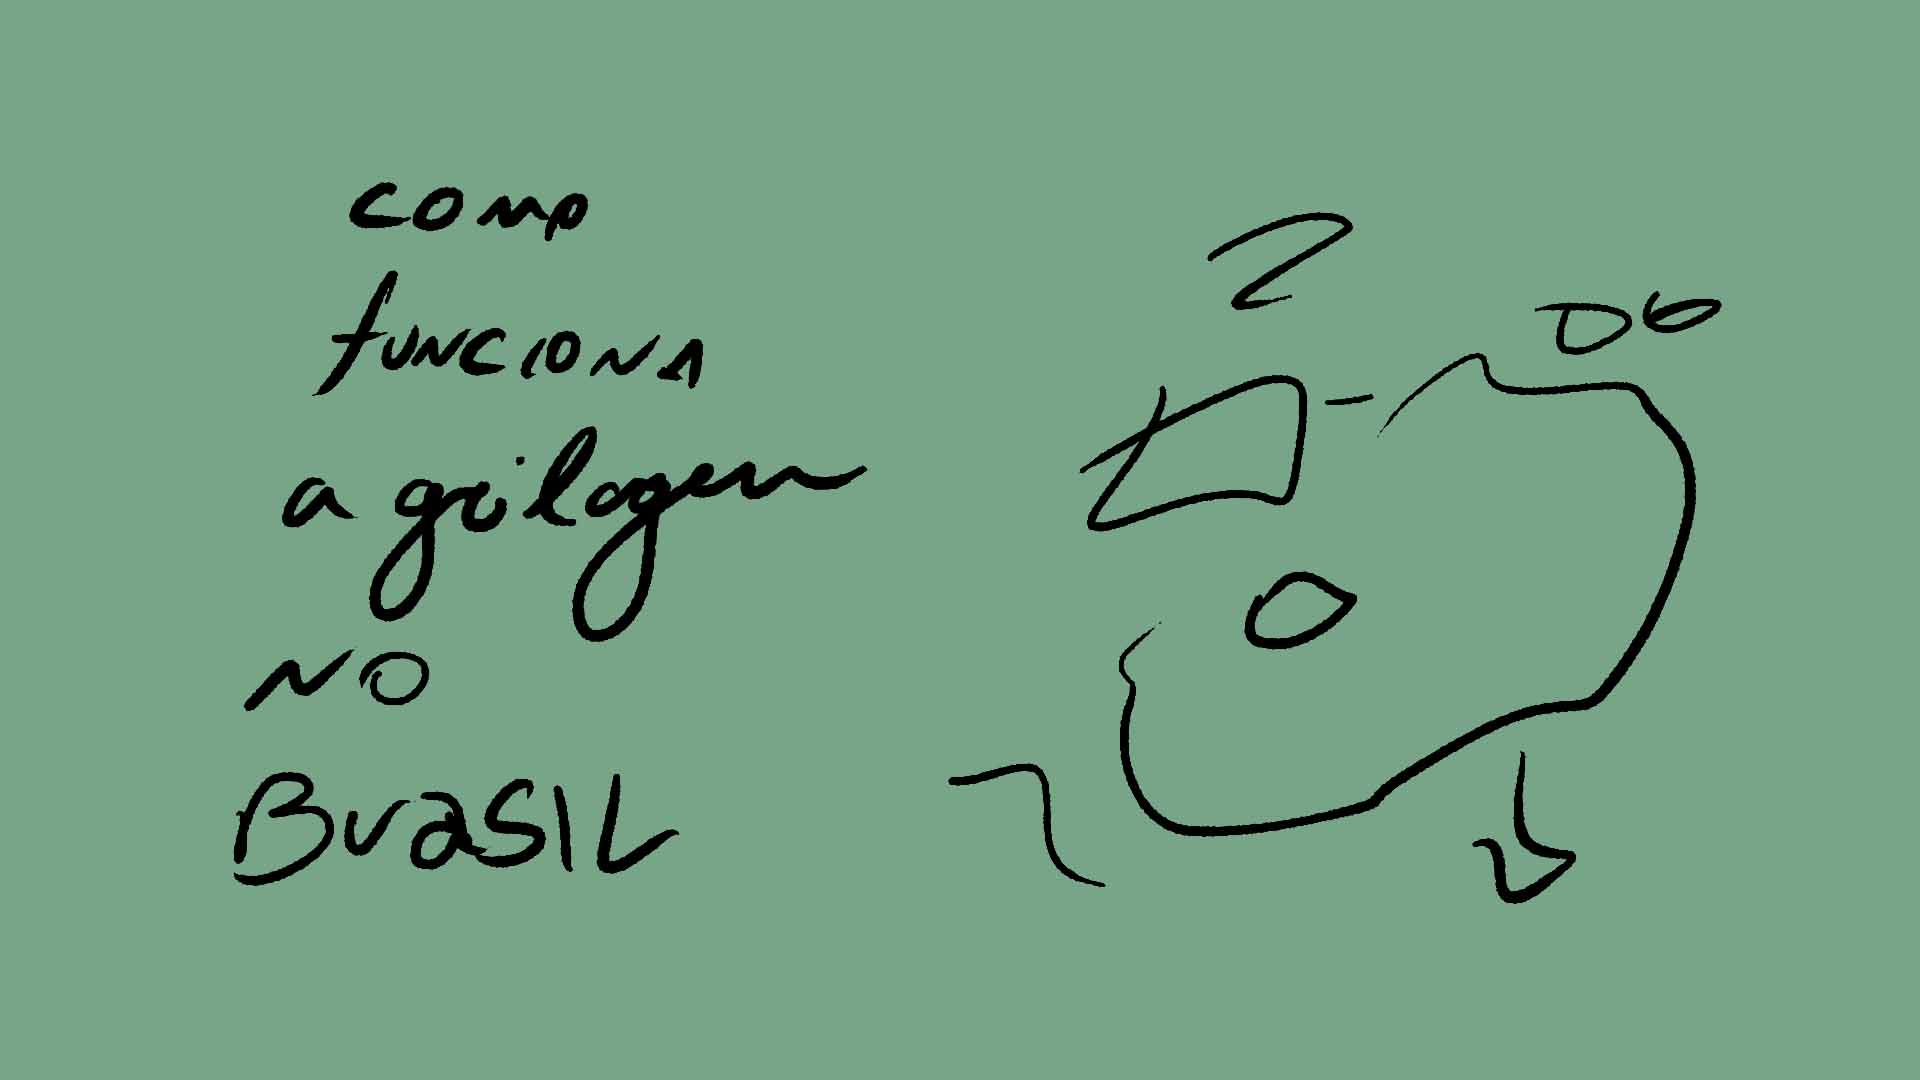 como
funciona
a grilagem
no
Brasil